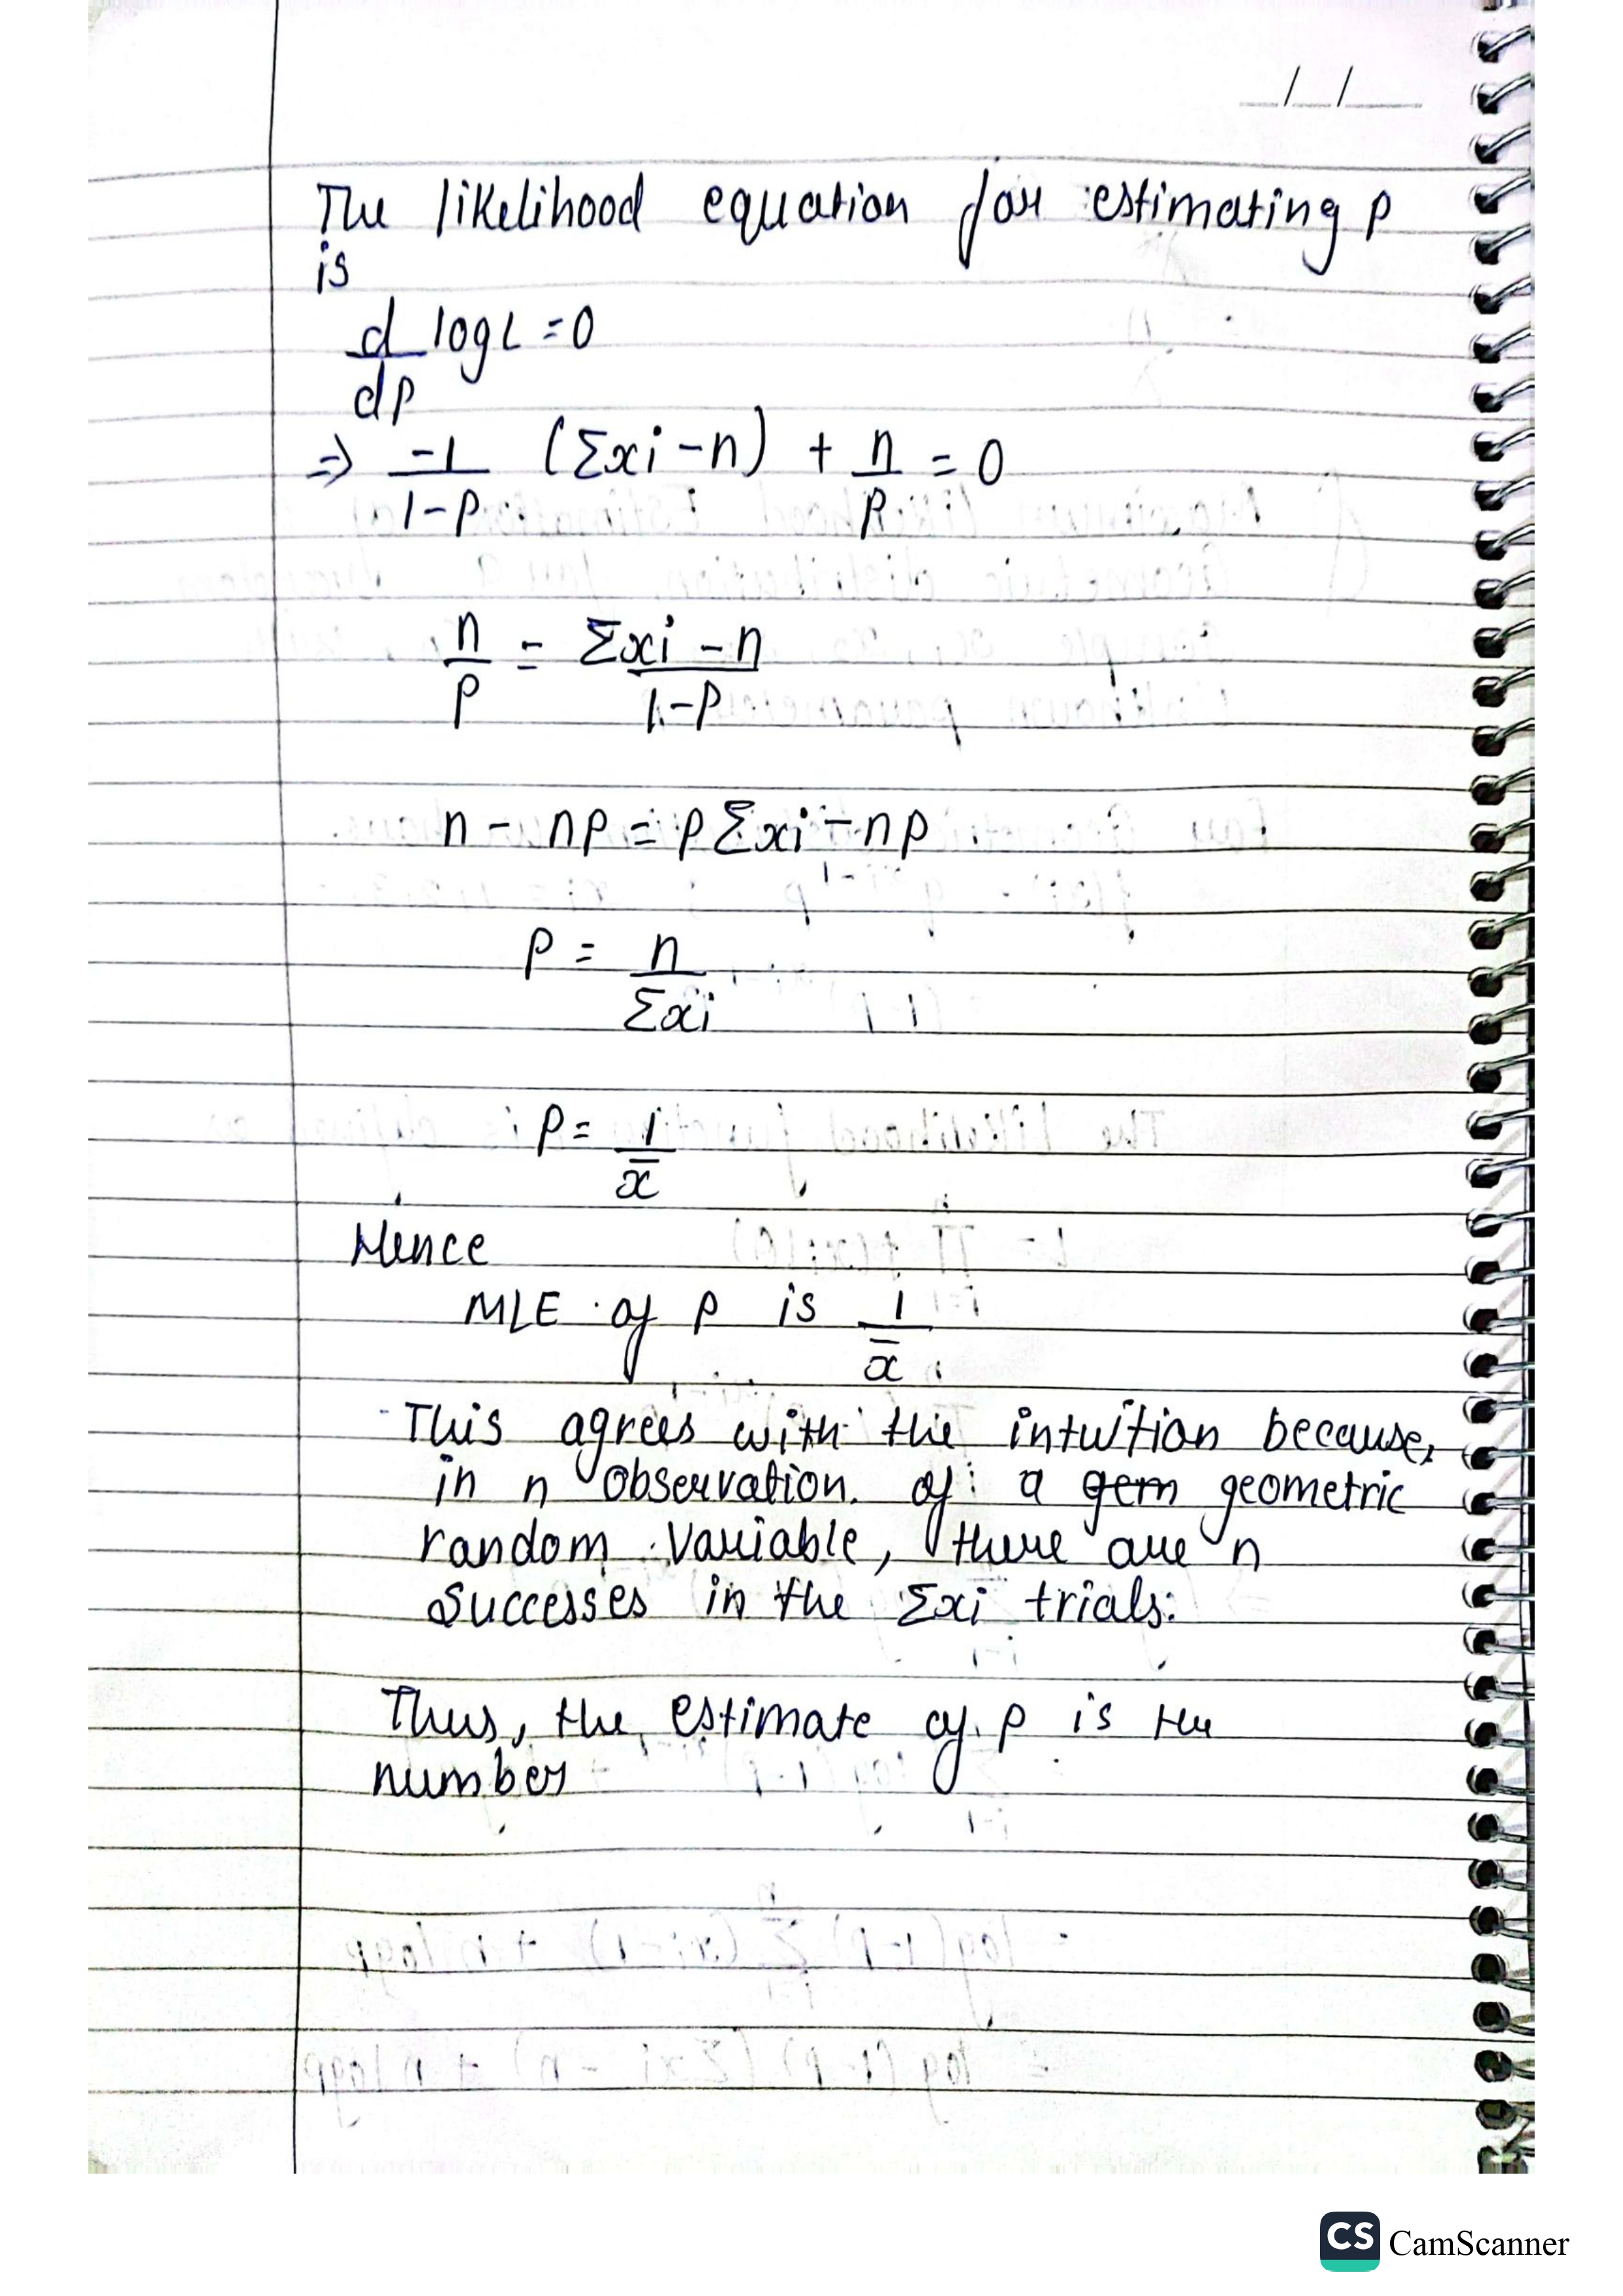 __/__/____
The likelihood equation for estimating p
is
d/dp log L = 0
⇒ -1/(1-p) (Σxi - n) + n/p = 0
n/p = (Σxi - n)/(1-p)
n - np = pΣxi - np
p = n/Σxi
p = 1/x̄
Hence
MLE of p is 1/x̄.
- This agrees with the intuition because,
in n observation. of a gem geometric
random variable, there are n
Successes in the Σxi trials.
Thus, the estimate of p is the
number
CS CamScanner